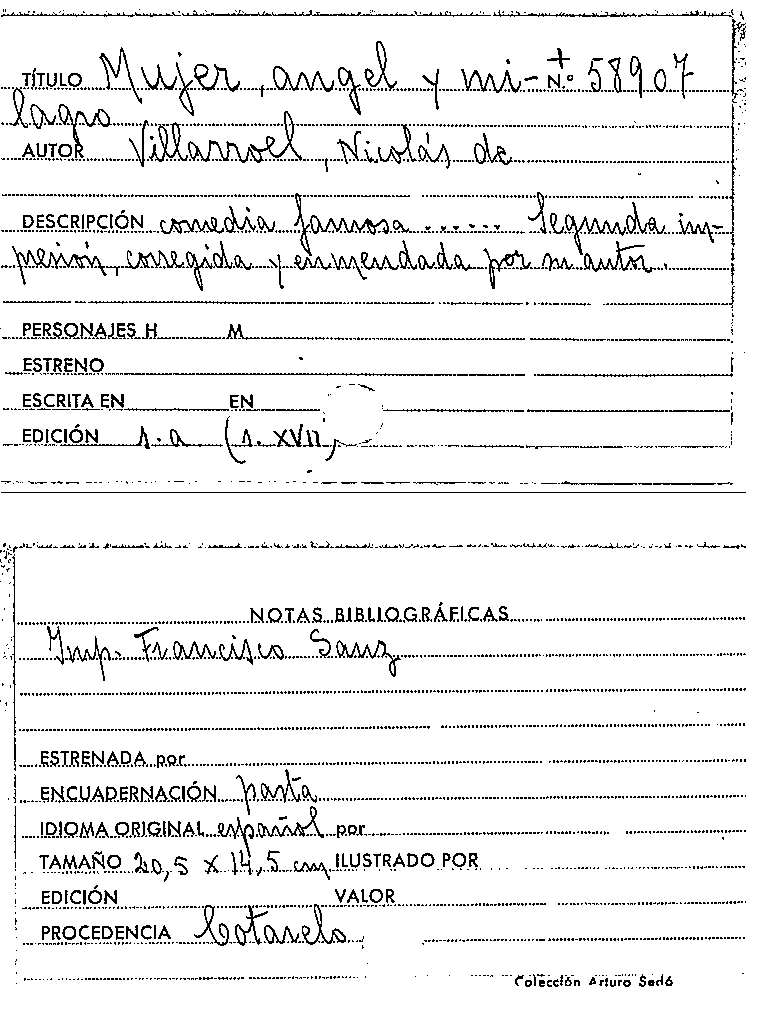 TÍTULO Mujer, angel y mi- + N.º 58907
lagro
AUTOR Villarroel, Nicolás de
DESCRIPCIÓN comedia famosa ...... Segunda im-
presión, corregida y enmendada por su autor.
PERSONAJES H M
ESTRENO
ESCRITA EN EN
EDICIÓN s.a. (s. XVII)
NOTAS BIBLIOGRÁFICAS
Imp. Francisco Sanz
ESTRENADA por
ENCUADERNACIÓN pasta
IDIOMA ORIGINAL español por
TAMAÑO 20,5 x 14,5 cm. ILUSTRADO POR
EDICIÓN VALOR
PROCEDENCIA Cotarelo
Colección Arturo Sedó